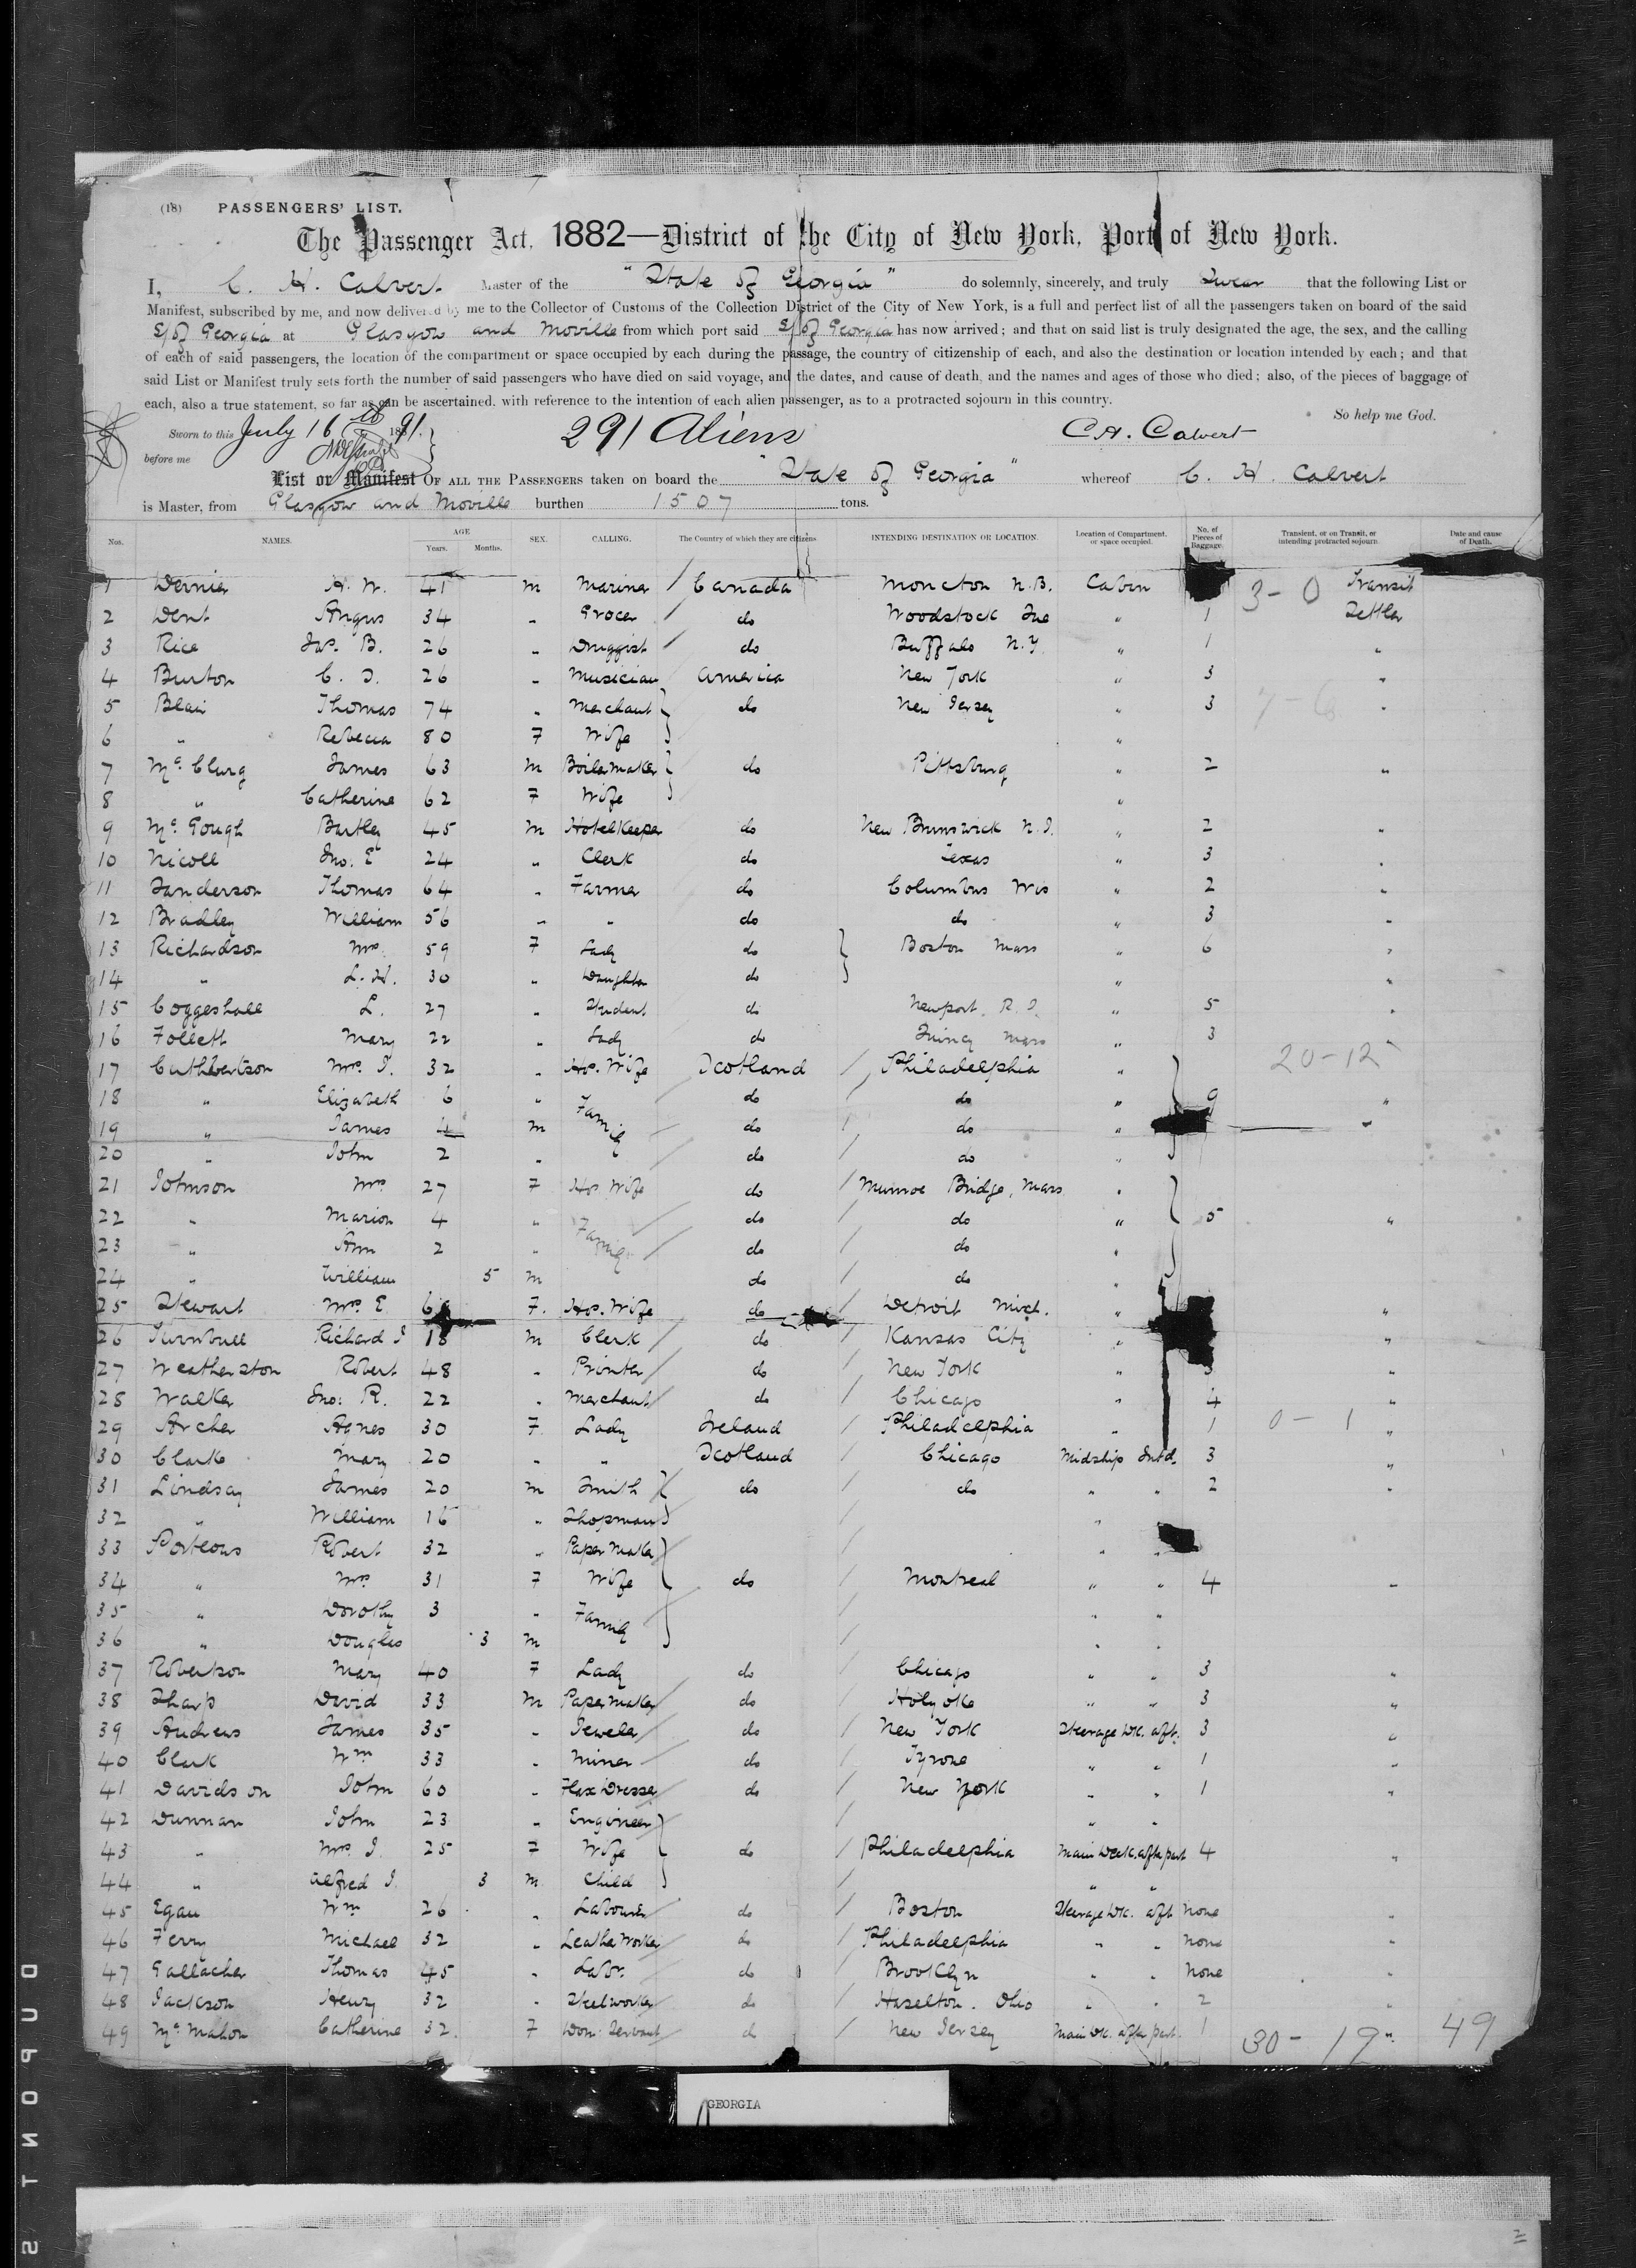 (18) PASSENGERS' LIST.
The Passenger Act, 1882—District of the City of New York, Port of New York.
I, C. H. Calvert Master of the "State of Georgia" do solemnly, sincerely, and truly Swear that the following List or
Manifest, subscribed by me, and now delivered by me to the Collector of Customs of the Collection District of the City of New York, is a full and perfect list of all the passengers taken on board of the said
S/of Georgia at Glasgow and Moville from which port said S/of Georgia has now arrived; and that on said list is truly designated the age, the sex, and the calling
of each of said passengers, the location of the compartment or space occupied by each during the passage, the country of citizenship of each, and also the destination or location intended by each; and that
said List or Manifest truly sets forth the number of said passengers who have died on said voyage, and the dates, and cause of death, and the names and ages of those who died; also, of the pieces of baggage of
each, also a true statement, so far as can be ascertained, with reference to the intention of each alien passenger, as to a protracted sojourn in this country.
So help me God.
Sworn to this July 16th 1891. 291 Aliens C.H. Calvert
before me
List or Manifest OF ALL THE PASSENGERS taken on board the "State of Georgia" whereof C. H. Calvert
is Master, from Glasgow and Moville burthen 1507 tons.
Nos. NAMES. AGE Years. Months. SEX. CALLING. The Country of which they are citizens INTENDING DESTINATION OR LOCATION. Location of Compartment, or space occupied. No. of Pieces of Baggage. Transient, or on Transit, or intending protracted sojourn. Date and cause of Death.
1 Dernier H. W. 41 m Mariner / Canada Moncton N.B. Cabin 3-0 Transit
2 Dent Angus 34 " Grocer / do Woodstock " 1 Settler
3 Rice Jas. B. 26 " Druggist / do Buffalo N.Y. " 1 "
4 Burton C. J. 26 " Musician America New York " 3 "
5 Blair Thomas 74 " Merchant do New Jersey " 3 7-6 "
6 " Rebecca 80 F Wife "
7 McClurg James 63 m Boilermaker do Pittsburg " 2 "
8 " Catherine 62 F Wife "
9 McGough Bartley 45 m Hotel Keeper do New Brunswick N.J. " 2 "
10 Nicoll Jno. E 24 " Clerk do Texas " 3 "
11 Sanderson Thomas 64 " Farmer do Columbus Wis " 2 "
12 Bradley William 56 " " do do " 3 "
13 Richardson Mrs. 59 F Lady do Boston Mass " 6 "
14 " L. H. 30 " Daughter do " "
15 Coggeshall L. 27 " Student do Newport, R.I. " 5 "
16 Follett Mary 22 " Lady do Quincy Mass " 3
17 Cuthbertson Mrs. J. 32 " Hos. Wife Scotland / Philadelphia " 20-12
18 " Elizabeth 6 " Family do do " 9 "
19 " James 4 m do / do " "
20 " John 2 " / do / do "
21 Johnson Mrs 27 F Hos. Wife do / Munroe Bridge, Mass "
22 " Marion 4 " Family / do / do " 5 "
23 " Ann 2 " / do / do "
24 " William 5 m do / do "
25 Stewart Mrs. E. F. Hos. Wife do / Detroit Mich. " "
26 Turnbull Richard J 18 m Clerk / do / Kansas City " "
27 Weatherston Robert 48 " Printer / do / New York " 3 "
28 Walker Jno: R. 22 " Merchant / do / Chicago " 4 "
29 Archer Agnes 30 F Lady Ireland / Philadelphia " 1 0-1 "
30 Clark Mary 20 " " Scotland / Chicago Midship Intd. 3 "
31 Lindsay James 20 m Smith do / do " " 2 "
32 " William 16 " Shopman / "
33 Porteous Robert 32 " Paper Maker / " "
34 " Mrs 31 F Wife do / Montreal " " 4 "
35 " Dorothy 3 " Family / " "
36 " Douglas 3 m / " "
37 Robertson Mary 40 F Lady do / Chicago " " 3 "
38 Sharp David 33 m Papermaker do / Holyoke " " 3 "
39 Andrews James 35 " Jeweler do / New York Steerage Dk. aft. 3 "
40 Clark Wm 33 " Miner do / Tyrone " " 1 "
41 Davidson John 60 " Flax Dresser do / New York " " 1 "
42 Dunnan John 23 " Engineer / " "
43 " Mrs. J. 25 F Wife do / Philadelphia Main Deck. aftr part 4 "
44 " Alfred J. 3 m Child / " "
45 Egan Wm 26 " Labourer do / Boston Steerage Dk. aft None "
46 Ferry Michael 32 " Leather Worker do / Philadelphia " " None "
47 Gallacher Thomas 45 " Labr. do / Brooklyn " " None "
48 Jackson Henry 32 " Steelworker do / Haselton. Ohio " " 2 "
49 McMahon Catherine 32 F Dom: Servant d / New Jersey Main Dk. aftr part. 1 30-19 " 49
GEORGIA
DUPONT S